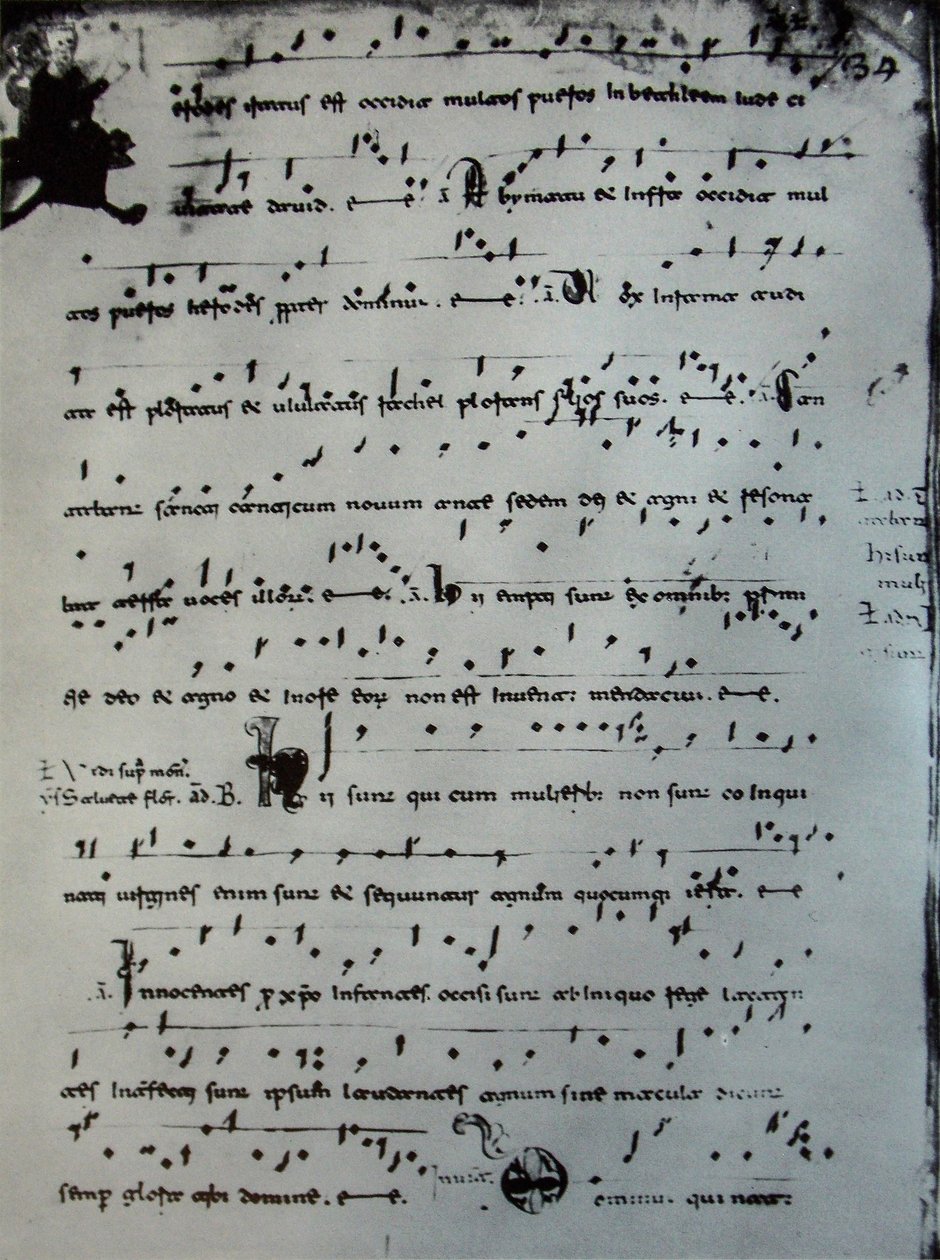 34
erodes iratus est occidit multos pueros In bethleem Iude ci
uitate dauid. e e. a A bymatu & Infra occidit mul
tos pueros herodes ppter dominum. e e. a. U ox Inrama audi
ta est ploratus & ululatus rachel plorans filios suos. e e. a. Can
tabant sancti canticum nouum ante sedem dei & agni & resona
bat terra uoces illorum. e e. a. h ii empti sunt ex omnib: primi
tie deo & agno & Inore eorum non est Inuentum mendacium. e e.
uidi sup mon.
Saluete flor. ad. B. h ii sunt qui cum mulierib: non sunt coInqui
nati uirgines enim sunt & sequuntur agnum quocumq: ierit. e e
a. Innocentes p xpo Infantes. occisi sunt ab Iniquo rege lacten
tes Interfecti sunt ipsum laudantes agnum sine macula dicunt
semp gloria tibi domine. e e. qui nat: